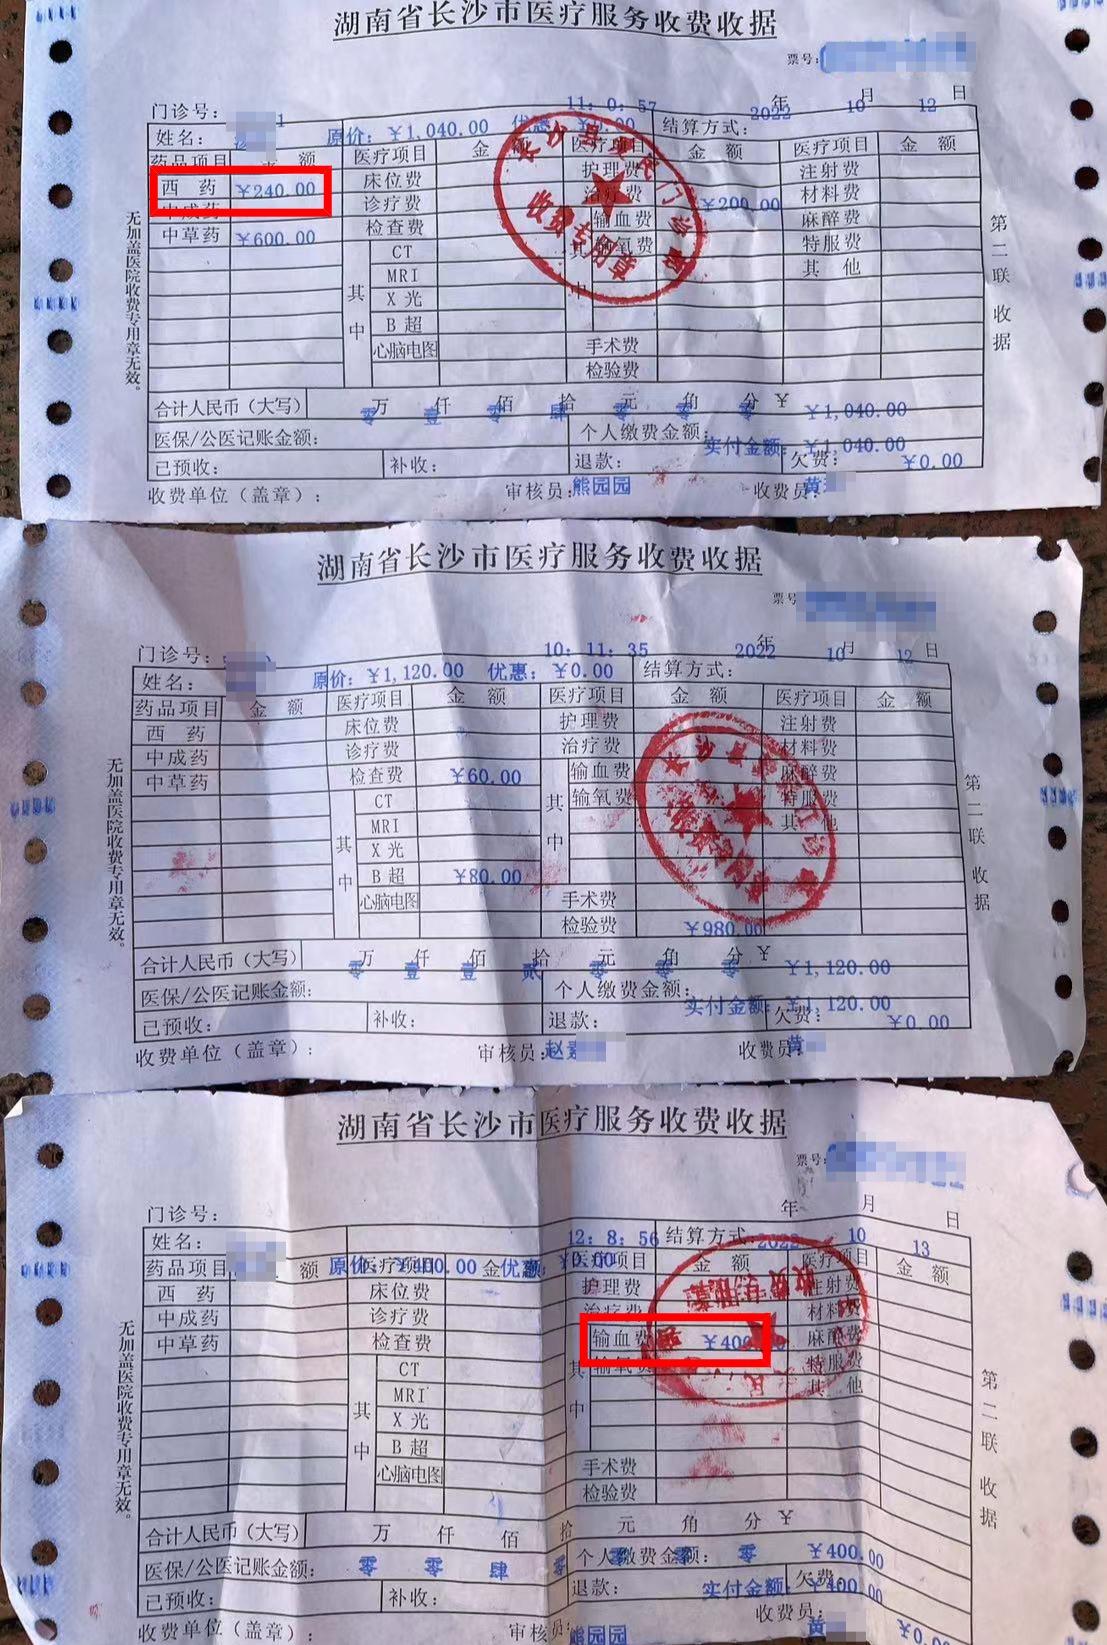 湖南省长沙市医疗服务收费收据
票号:
门诊号: 11: 0: 57 2022 年 10 月 12 日
姓名: 原价: ￥1,040.00 优惠 0.00 结算方式:
药品项目 金 额 医疗项目 金 额 医疗项目 金 额 医疗项目 金 额
西 药 ￥240.00 床位费 护理费 注射费
中成药 诊疗费 治疗费 ￥200.00 材料费
中草药 ￥600.00 检查费 输血费 麻醉费
其中 CT 其中 输氧费 特服费
MRI 其 他
X 光
B 超
心脑电图 手术费
检验费
合计人民币（大写） 零 万 壹 仟 零 佰 肆 拾 零 元 零 角 零 分 ￥ ￥1,040.00
医保/公医记账金额: 个人缴费金额: 实付金额: ￥1,040.00
已预收: 补收: 退款: 欠费: ￥0.00
收费单位（盖章）: 审核员: 熊园园 收费员: 黄
无加盖医院收费专用章无效。
第二联 收据
收费专用章
湖南省长沙市医疗服务收费收据
票号
门诊号: 10: 11: 35 2022 年 10 月 12 日
姓名: 原价: ￥1,120.00 优惠: ￥0.00 结算方式:
药品项目 金 额 医疗项目 金 额 医疗项目 金 额 医疗项目 金 额
西 药 床位费 护理费 注射费
中成药 诊疗费 治疗费 材料费
中草药 检查费 ￥60.00 输血费 麻醉费
其中 CT 其中 输氧费 特服费
MRI 其 他
X 光
B 超 ￥80.00
心脑电图 手术费
检验费 ￥980.00
合计人民币（大写） 零 万 壹 仟 壹 佰 贰 拾 零 元 零 角 零 分 ￥ ￥1,120.00
医保/公医记账金额: 个人缴费金额: 实付金额: ￥1,120.00
已预收: 补收: 退款: 欠费: ￥0.00
收费单位（盖章）: 审核员: 赵 收费员: 黄
无加盖医院收费专用章无效。
第二联 收据
湖南省长沙市医疗服务收费收据
票号:
门诊号: 年 月 日
姓名: 12: 8: 56 结算方式: 2022 10 13
药品项目 额 原价: ￥400.00 医疗项目 金 优惠: ￥0.00 医疗项目 金 额 医疗项目 金 额
西 药 床位费 护理费 注射费
中成药 诊疗费 治疗费 材料费
中草药 检查费 输血费 ￥400 麻醉费
其中 CT 其中 输氧费 特服费
MRI 其 他
X 光
B 超
心脑电图 手术费
检验费
合计人民币（大写） 万 仟 佰 拾 元 角 分 ￥
医保/公医记账金额: 零 零 肆 零 个人缴费金额: 零 零 零 ￥400.00
已预收: 补收: 退款: 实付金额: 欠费: ￥400.00
收费单位（盖章）: 审核员: 熊园园 收费员: 黄 ￥0.
无加盖医院收费专用章无效。
第二联 收据